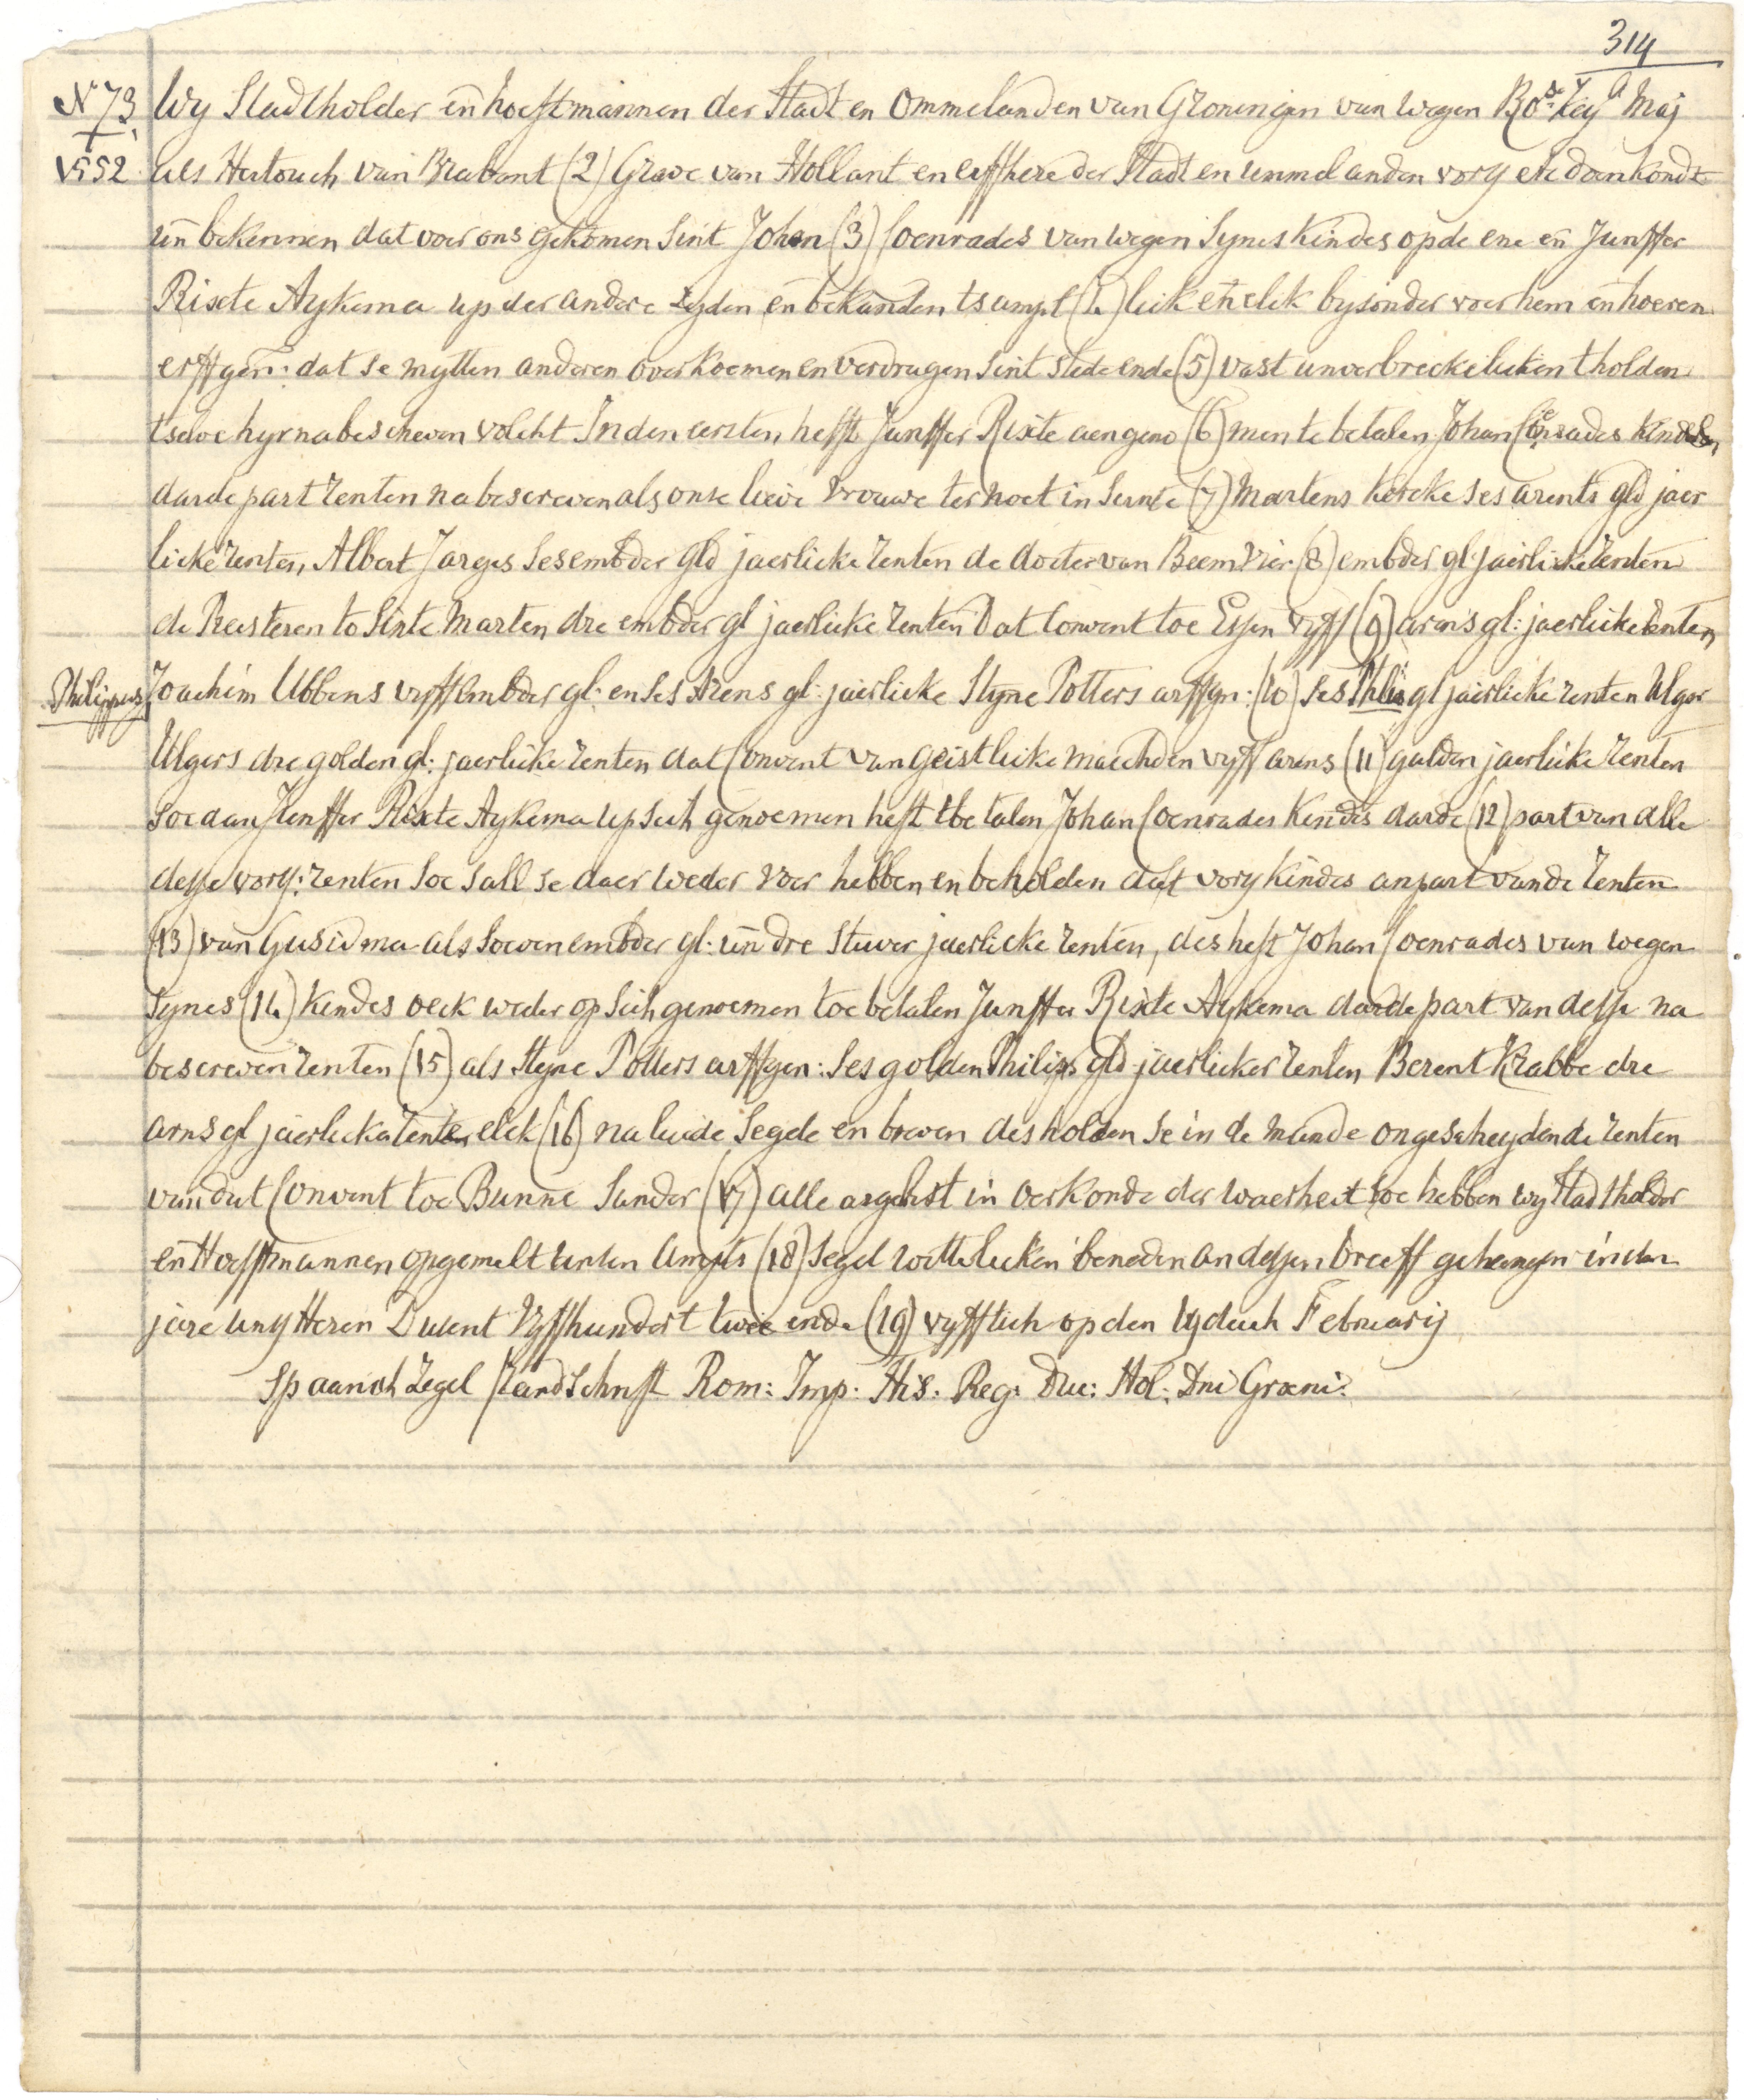 314
N 73 Wy Stadtholder en̄ hoeftmannen der Stadt en Ommelanden van Groningen van wegen Ro.se Key.e Maj
1552 als Hertouch van Brabant (2) Grave van Hollant en erffhere der Stadt en ummelanden vorg etc doen kondt
un̄ bekennen dat voer ons gekomen sint Johan (3) Coenrades van wegen synes kindes op de ene en̄ Junffer
Rixte Aykema up der andere zyden en̄ bekanden tsampt (4) lick en̄ elck bysonder voer hem en̄ hoeren
erffgen: dat se mytten anderen overkoemen en verdragen sint stede ende (5) vast unverbreckelicken tholden
tselve hyrna bescheven volcht In den ersten hefft Junffer Rixte aengeno (6) men te betalen Johan Coenrades kindes
darde part renten nabescreven als onse lieve Vrouwe ter noet in Sunte (7) Martens kercke ses arents gld jaer
licke renten, Albert Jarges ses embder gld jaerlicke renten de docter van Beem vier (8) embder gl jaerlicke renten
de Preesteren to Sinte Marten dre embder gl jaerlicke renten Dat Convent toe Essen vyff (9) arens gl: jaerlicke renten
Philippus Joachim Ubbens vyff Embder gl: en ses Arens gl: jaerlicke Styne Potters arffgn: (10) ses Phlis gl jaerlicke renten Ulger
Ulgers dre golden gl: jaerlicke renten dat Convent van geistlicke maechden vyff arens (11) gulden jaerlicke renten
soe dan Junffer Rixte Aykema up sich genoemen heft tbetalen Johan Coenrades kindes darde (12) part van alle
desse vorg: renten soe sall se daer weder voer hebben en beholden dat vorg kindes anpart van de renten
(13) van Gusidma als soeven embder gl: un̄ dre stuver jaerlicke renten, des heft Johan Coenrades van wegen
synes (14) kindes oeck weder op sich genoemen toe betalen Junffer Rixte Aykema darde part van desse na
bescreven renten (15) als Styne Potters arffgen: ses golden Philips gld jaerlicker renten Berent Krabbe dre
arns gl jaerlicka renten elck (16) na luide segele en breven des holden se in de mande ongescheyden de renten
van dat Convent toe Bunne Sunder (17) alle argelist in oerkonde der waerheit soe hebben wy Stadtholder
en Hoefftmannen opgemelt unsen Ampts (18) segel wittelicken beneden an dessen breeff gehangen in den
jare uns Heren Dusent Vyffhundert twee ende (19) vyfftich op den lyden Februarij
Spaansch Zegel Randschrift Rom: Imp: His: Reg: Duc: Hol: Dni Groeni: